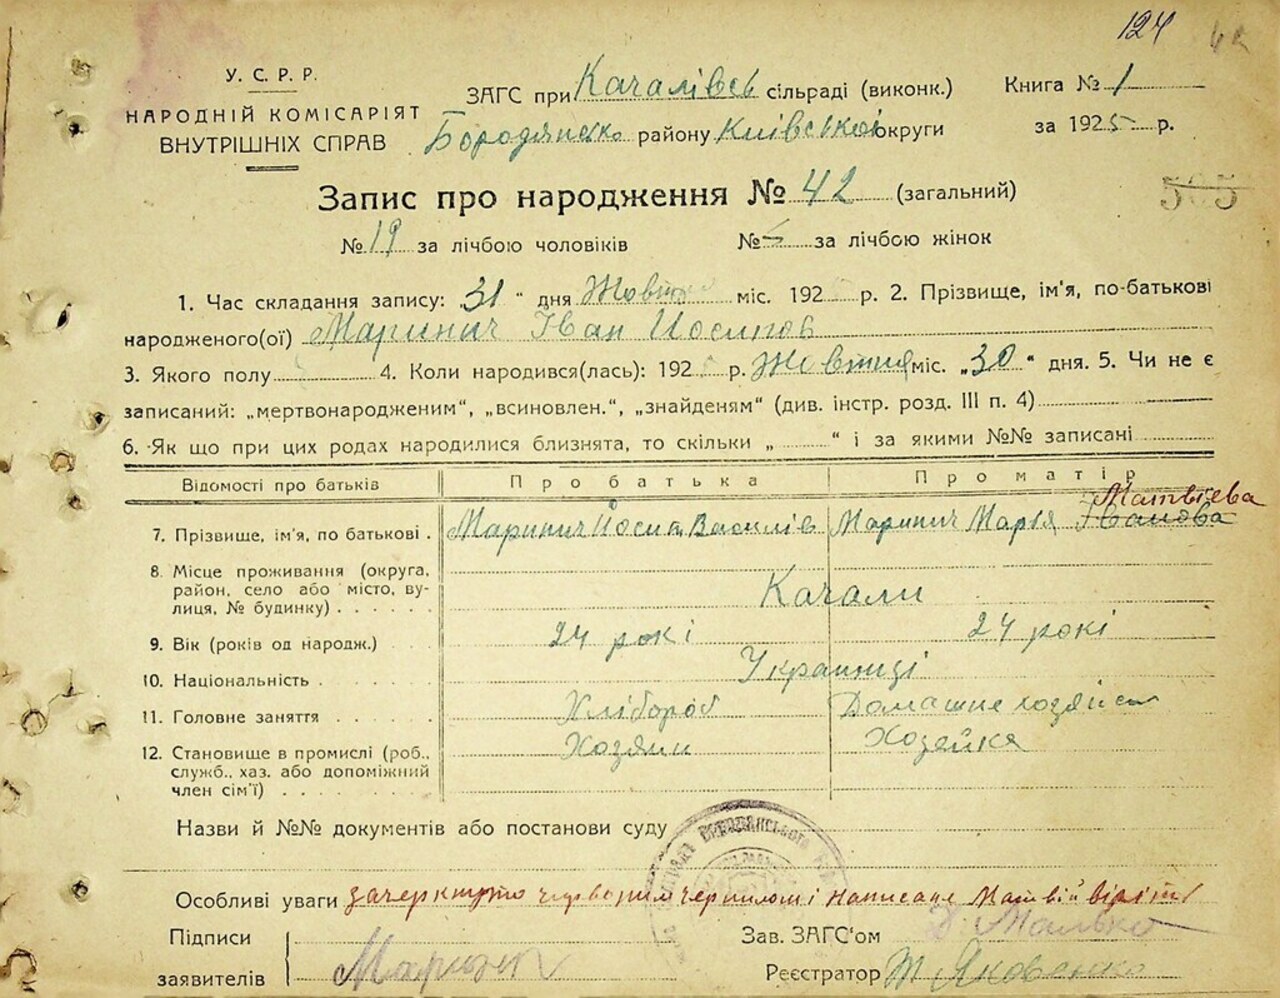 124
У. С. Р. Р.
НАРОДНІЙ КОМІСАРІЯТ
ВНУТРІШНІХ СПРАВ
ЗАГС при Качалівсь сільраді (виконк.)
Бородянсько району Київської округи
Книга № 1
за 1925 р.
Запис про народження № 42 (загальний)
505
№ 19 за лічбою чоловіків № за лічбою жінок
1. Час складання запису: „31“ дня Жовтня міс. 192 р. 2. Прізвище, ім'я, по-батькові
народженого(ої) Маринич Іван Йосипов
3. Якого полу 4. Коли народився(лась): 192 р. Жовтня міс. „30“ дня. 5. Чи не є
записаний: „мертвонародженим“, „всиновлен.“, „знайденям“ (див. інстр. розд. III п. 4)
6. Як що при цих родах народилися близнята, то скільки „ “ і за якими №№ записані
Відомості про батьків Про батька Про матір
Матвієва
7. Прізвище, ім'я, по батькові . Маринич Йосип Василів Маринич Марія Іванова
8. Місце проживання (округа,
район, село або місто, ву-
лиця, № будинку) . . . . . . Качали
9. Вік (років од народж.) . . 24 рокі 24 рокі
10. Національність . . . . . . Українці
11. Головне заняття . . . . . Хлібороб Домашне хозяйст
12. Становище в промислі (роб.,
служб., хаз. або допоміжний
член сім'ї) . . . . . . . . Хозяин Хозейка
Назви й №№ документів або постанови суду
Особливі уваги зачеркнуто червоним чернилом і написане Матвій вірить
Підписи
заявителів Марини
Зав. ЗАГС'ом Д. Малько
Реєстратор Яковенко